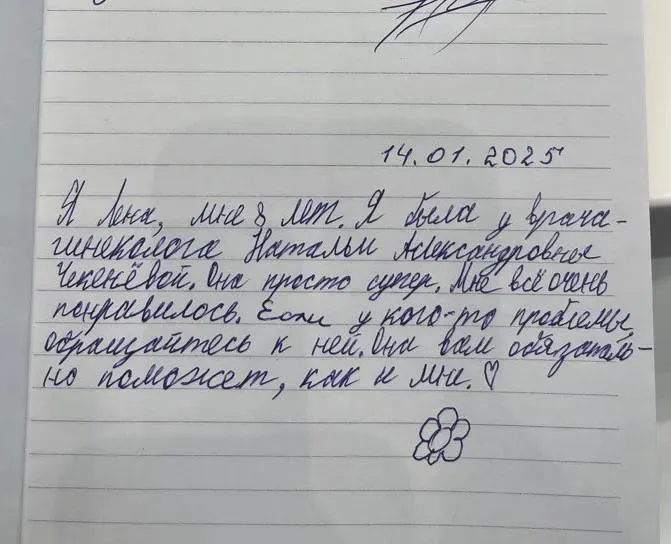 14.01.2025
Я Лена, мне 8 лет. Я была у врача-
гинеколога Натальи Александровны
Чекенёвой. Она просто супер. Мне всё очень
понравилось. Если у кого-то проблемы,
обращайтесь к ней. Она вам обязатель-
но поможет, как и мне.♡